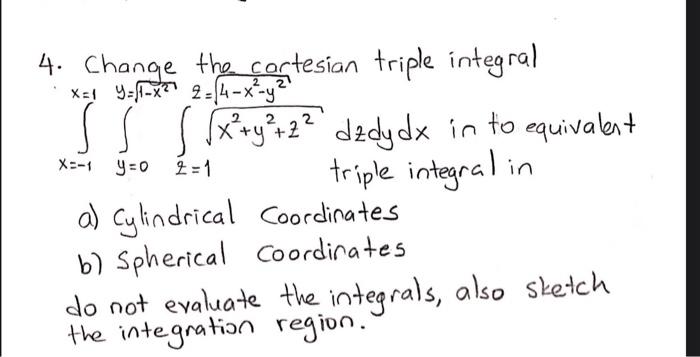 4. Change the cartesian triple integral
x=1 y=√1-x² z=√4-x²-y²
∫ ∫ ∫ √x²+y²+z² dzdydx in to equivalent
x=-1 y=0 z=1 triple integral in
a) Cylindrical Coordinates
b) Spherical Coordinates
do not evaluate the integrals, also sketch
the integration region.